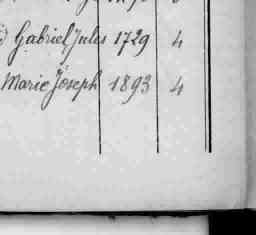 Gabriel Jules 1729 4
Marie Joseph 1893 4